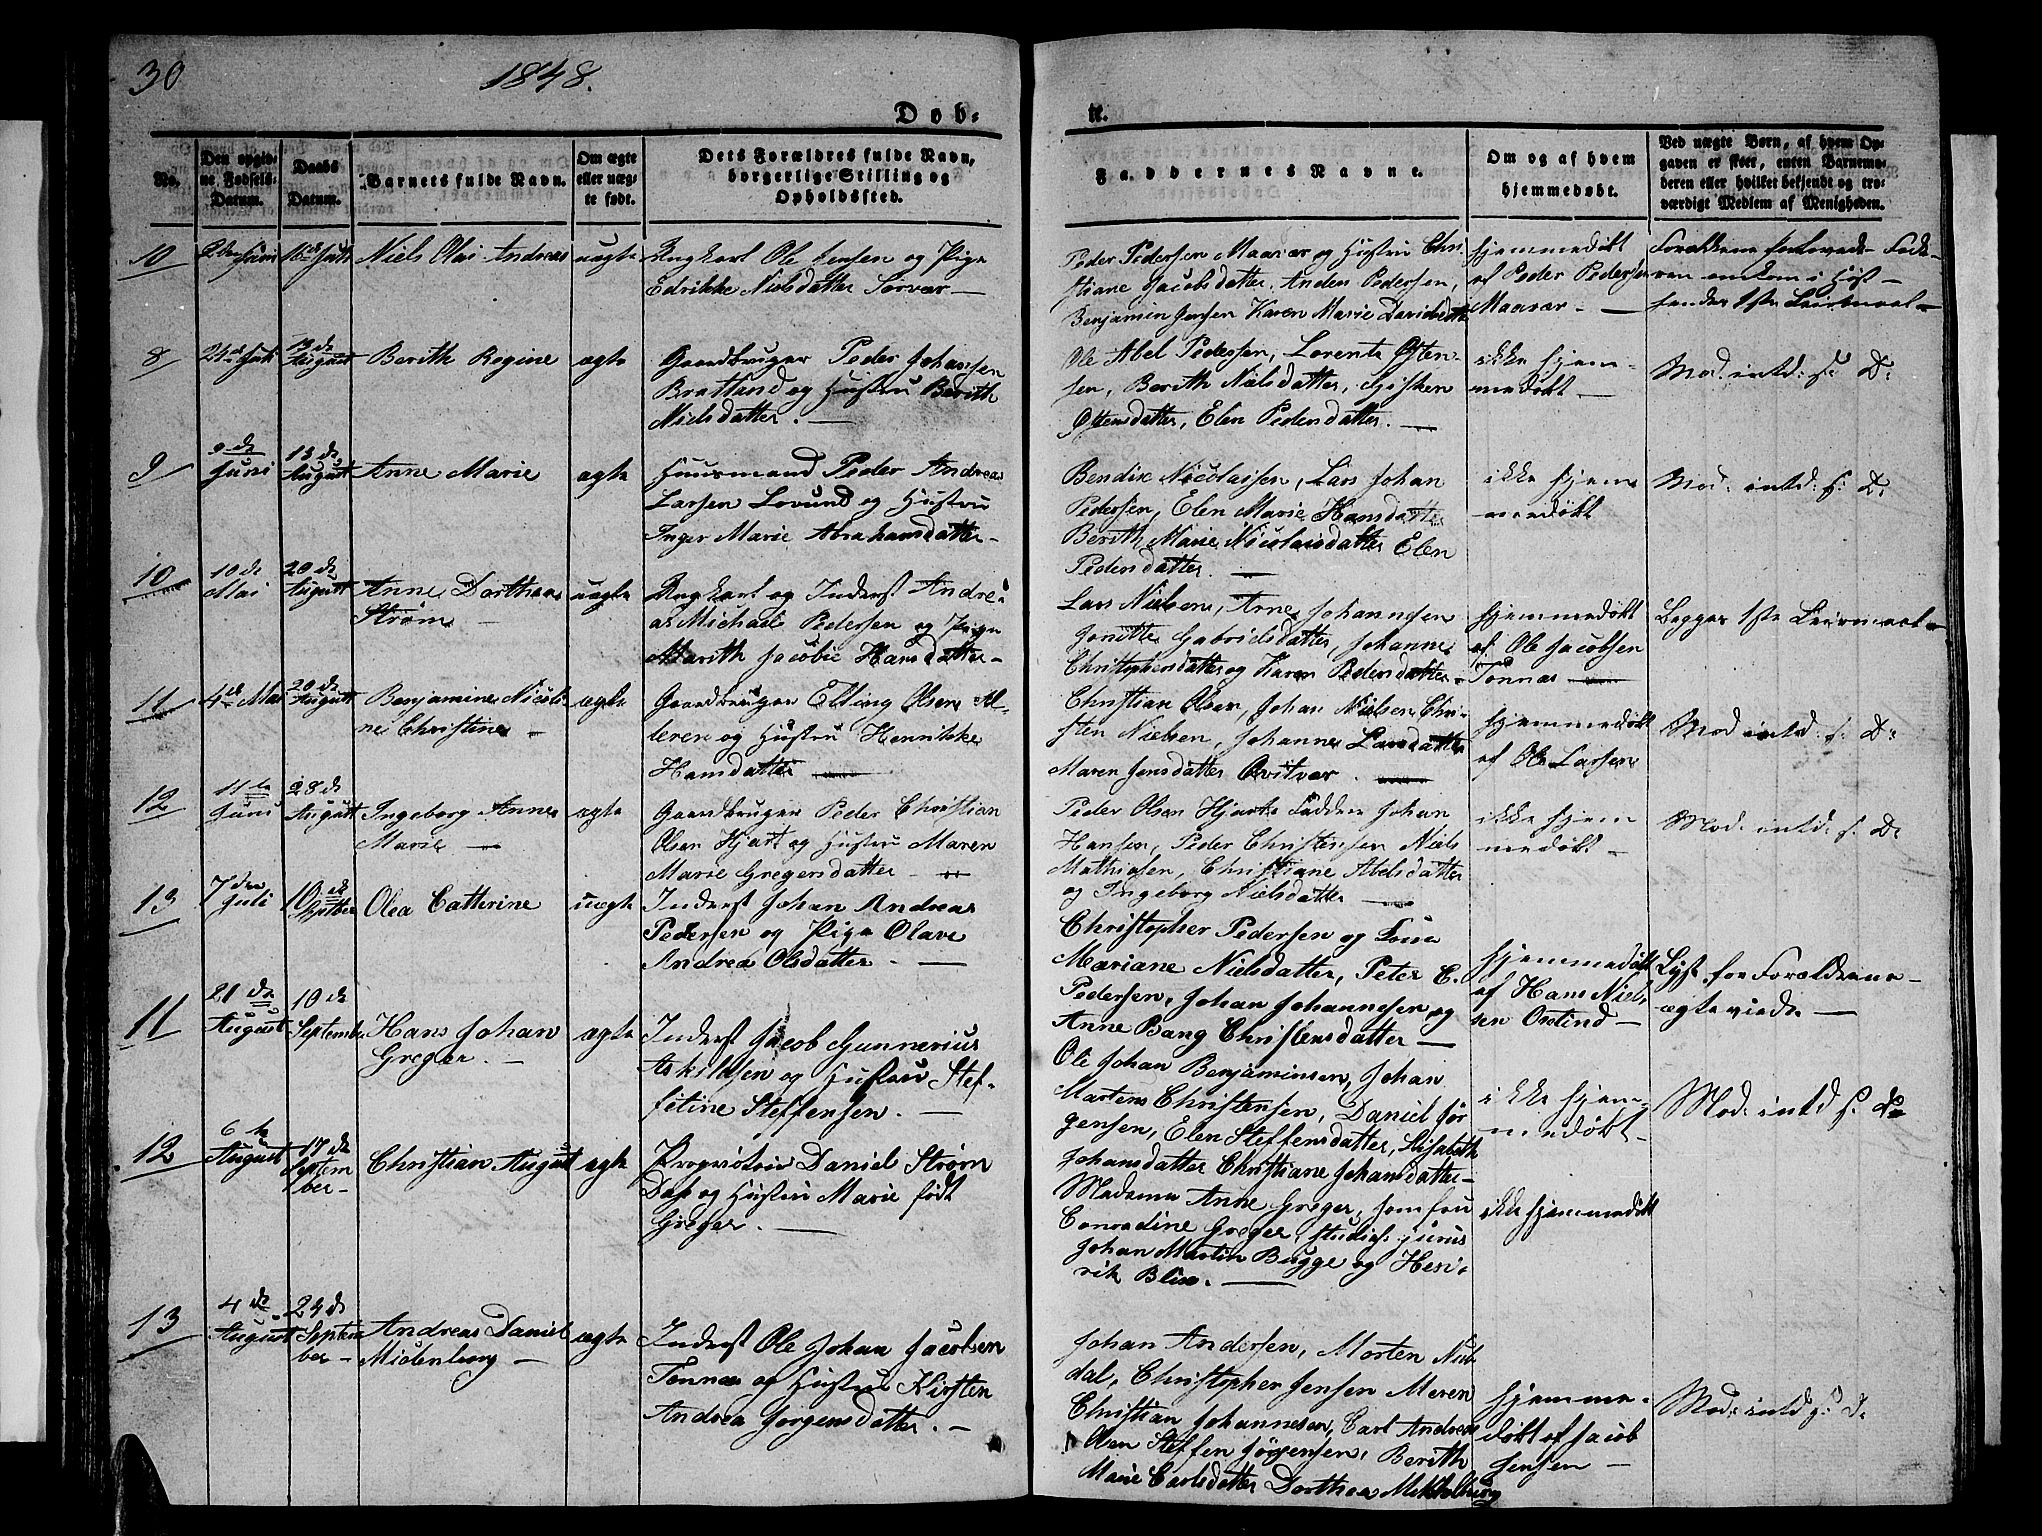 30
1848.
Døb-
n.
No.
Den opgiv-
ne Fødsels-
Datum.
Daabs
Datum.
Barnets fulde Navn.
Om ægte
eller uæg-
te født.
Dets Forældres fulde Navn,
borgerlige Stilling og
Opholdssted.
Faddernes Navne.
Om og af hvem
hjemmedøbt.
Ved uægte Børn, af hvem Op-
gaven er skeet, enten Barnemo-
deren eller hvilket bekjendt og tro-
værdigt Medlem af Menigheden.
10
Juni
16de Juli
Niels Olai Andreas
uægte
Ungkarl Ole Jensen og Pige
Edrikke Nielsdatter Sorvær —
Peder Pedersen Maavær og Hustru Chri-
stiane Jacobsdatter, Anders Pedersen,
Benjamin Jensen Karen Marie Davidsdatter
hjemmedøbt
af Peder Pedersen
Maavær —
Forældrene forlovede
1ste Leiermaal —
8
24de Juli
13de
August
Berith Regine
ægte
Gaardbruger Peder Johansen
Bratland og Hustru Berith
Nielsdatter. —
Ole Abel Pedersen, Lorents Osten-
sen, Berith Nielsdatter,
Ostensdatter, Elen Pedersdatter. —
ikke hjem-
medøbt —
Mod. intd. f. D.
9
9de
Juni
13de
August
Anne Marie
ægte
Huusmand Peder Andreas
Larsen Lovund og Hustru
Inger Marie Abrahamsdatter —
Bendix Nicolaisen, Lars Johan
Pedersen, Elen Marie Hansdatter
Berith Marie Nicolaisdatter Elen
Pedersdatter. —
ikke hjem
medøbt
Mod. intd. f. D.
10
10de
Mai
20de
August
Anne Dorthea
Strøm —
uægte
Ungkarl og Inderst Andre-
as Michael Pedersen og Pige
Marith Jacobie Hansdatter —
Lars Nielsen, Arne Johannesen
Jonette Gabrielsdatter, Johanne
Christophersdatter og Karen Pedersdatter —
hjemmedøbt
af Ole Jacobsen
Tonnæs —
Begges 1ste Leiermaal —
11
4de Mai
20de
August
Benjamine Nicoli-
ne Christine —
ægte
Gaardbruger Elling Olsen Al-
deren og Hustru Henrikke
Hansdatter —
Christian Olsen, Johan Nielsen, Chri-
sten Nielsen, Johanne Larsdatter
Maren Jensdatter Qvitvær. —
hjemmedøbt
af Ole Larsen
Mod intd. f. D.
12
11te
Juni
28de
August
Ingeborg Anne
Marie —
ægte
Gaardbruger Peder Christian
Olsen Hjart og Hustru Maren
Marie Gregersdatter —
Peder Olsen Hjart Johan
Hansen, Peder Christensen Niels
Mathiasen, Christiane Abelsdatter
og Ingeborg Nielsdatter —
ikke hjem
medøbt —
Mod. intd. f. D.
13
7de
Juli
10de
Septber
Olea Cathrine
uægte
Inderst Johan Andreas
Pedersen og Pige Olave
Andrea Olsdatter —
Christopher Pedersen og
Mariane Nielsdatter, Peter C.
Pedersen, Johan Johannesen og
Anne Bang Christensdatter —
hjemmedøbt
af Hans Niel-
sen —
Lyst for Forældrene
ægteviede —
11
21de
August
10de
September
Hans Johan
Greger. —
ægte
Inderst Jacob Gunnerius
Askildsen og Hustru Stef-
fetine Steffensen. —
Ole Johan Benjaminsen, Johan
Martens Christensen, Daniel Jør
gensen, Elen Steffensdatter, Elisabeth
Johansdatter Christiane Johansdatter —
ikke hjem-
medøbt —
Mod. intd f. D.
12
6te
August
17de
Septem
ber —
Christian August
ægte
Daniel Strøm
Dass og Hustru Marie født
Greger. —
Madame Anne Greger, Jomfru
Conradine Greger, studios. juris
Johan Martin Bugge og Hen-
rik Blix. —
ikke hjemmedøbt
13
4de
August
24de
Septem
ber —
Andreas Daniel
Midenborg —
ægte
Inderst Ole Johan Jacobsen
Tonnæs og Hustru Kirsten
Andrea Jørgensdatter. —
Johan Andersen, Morten
dal, Christopher Jensen
Christian Johannesen, Carl Andreas
Olsen Steffen Jørgensen, Berith
Marie Carlsdatter Dorthea
hjemme-
døbt af Jacob
Jensen —
Mod. intd f. D.